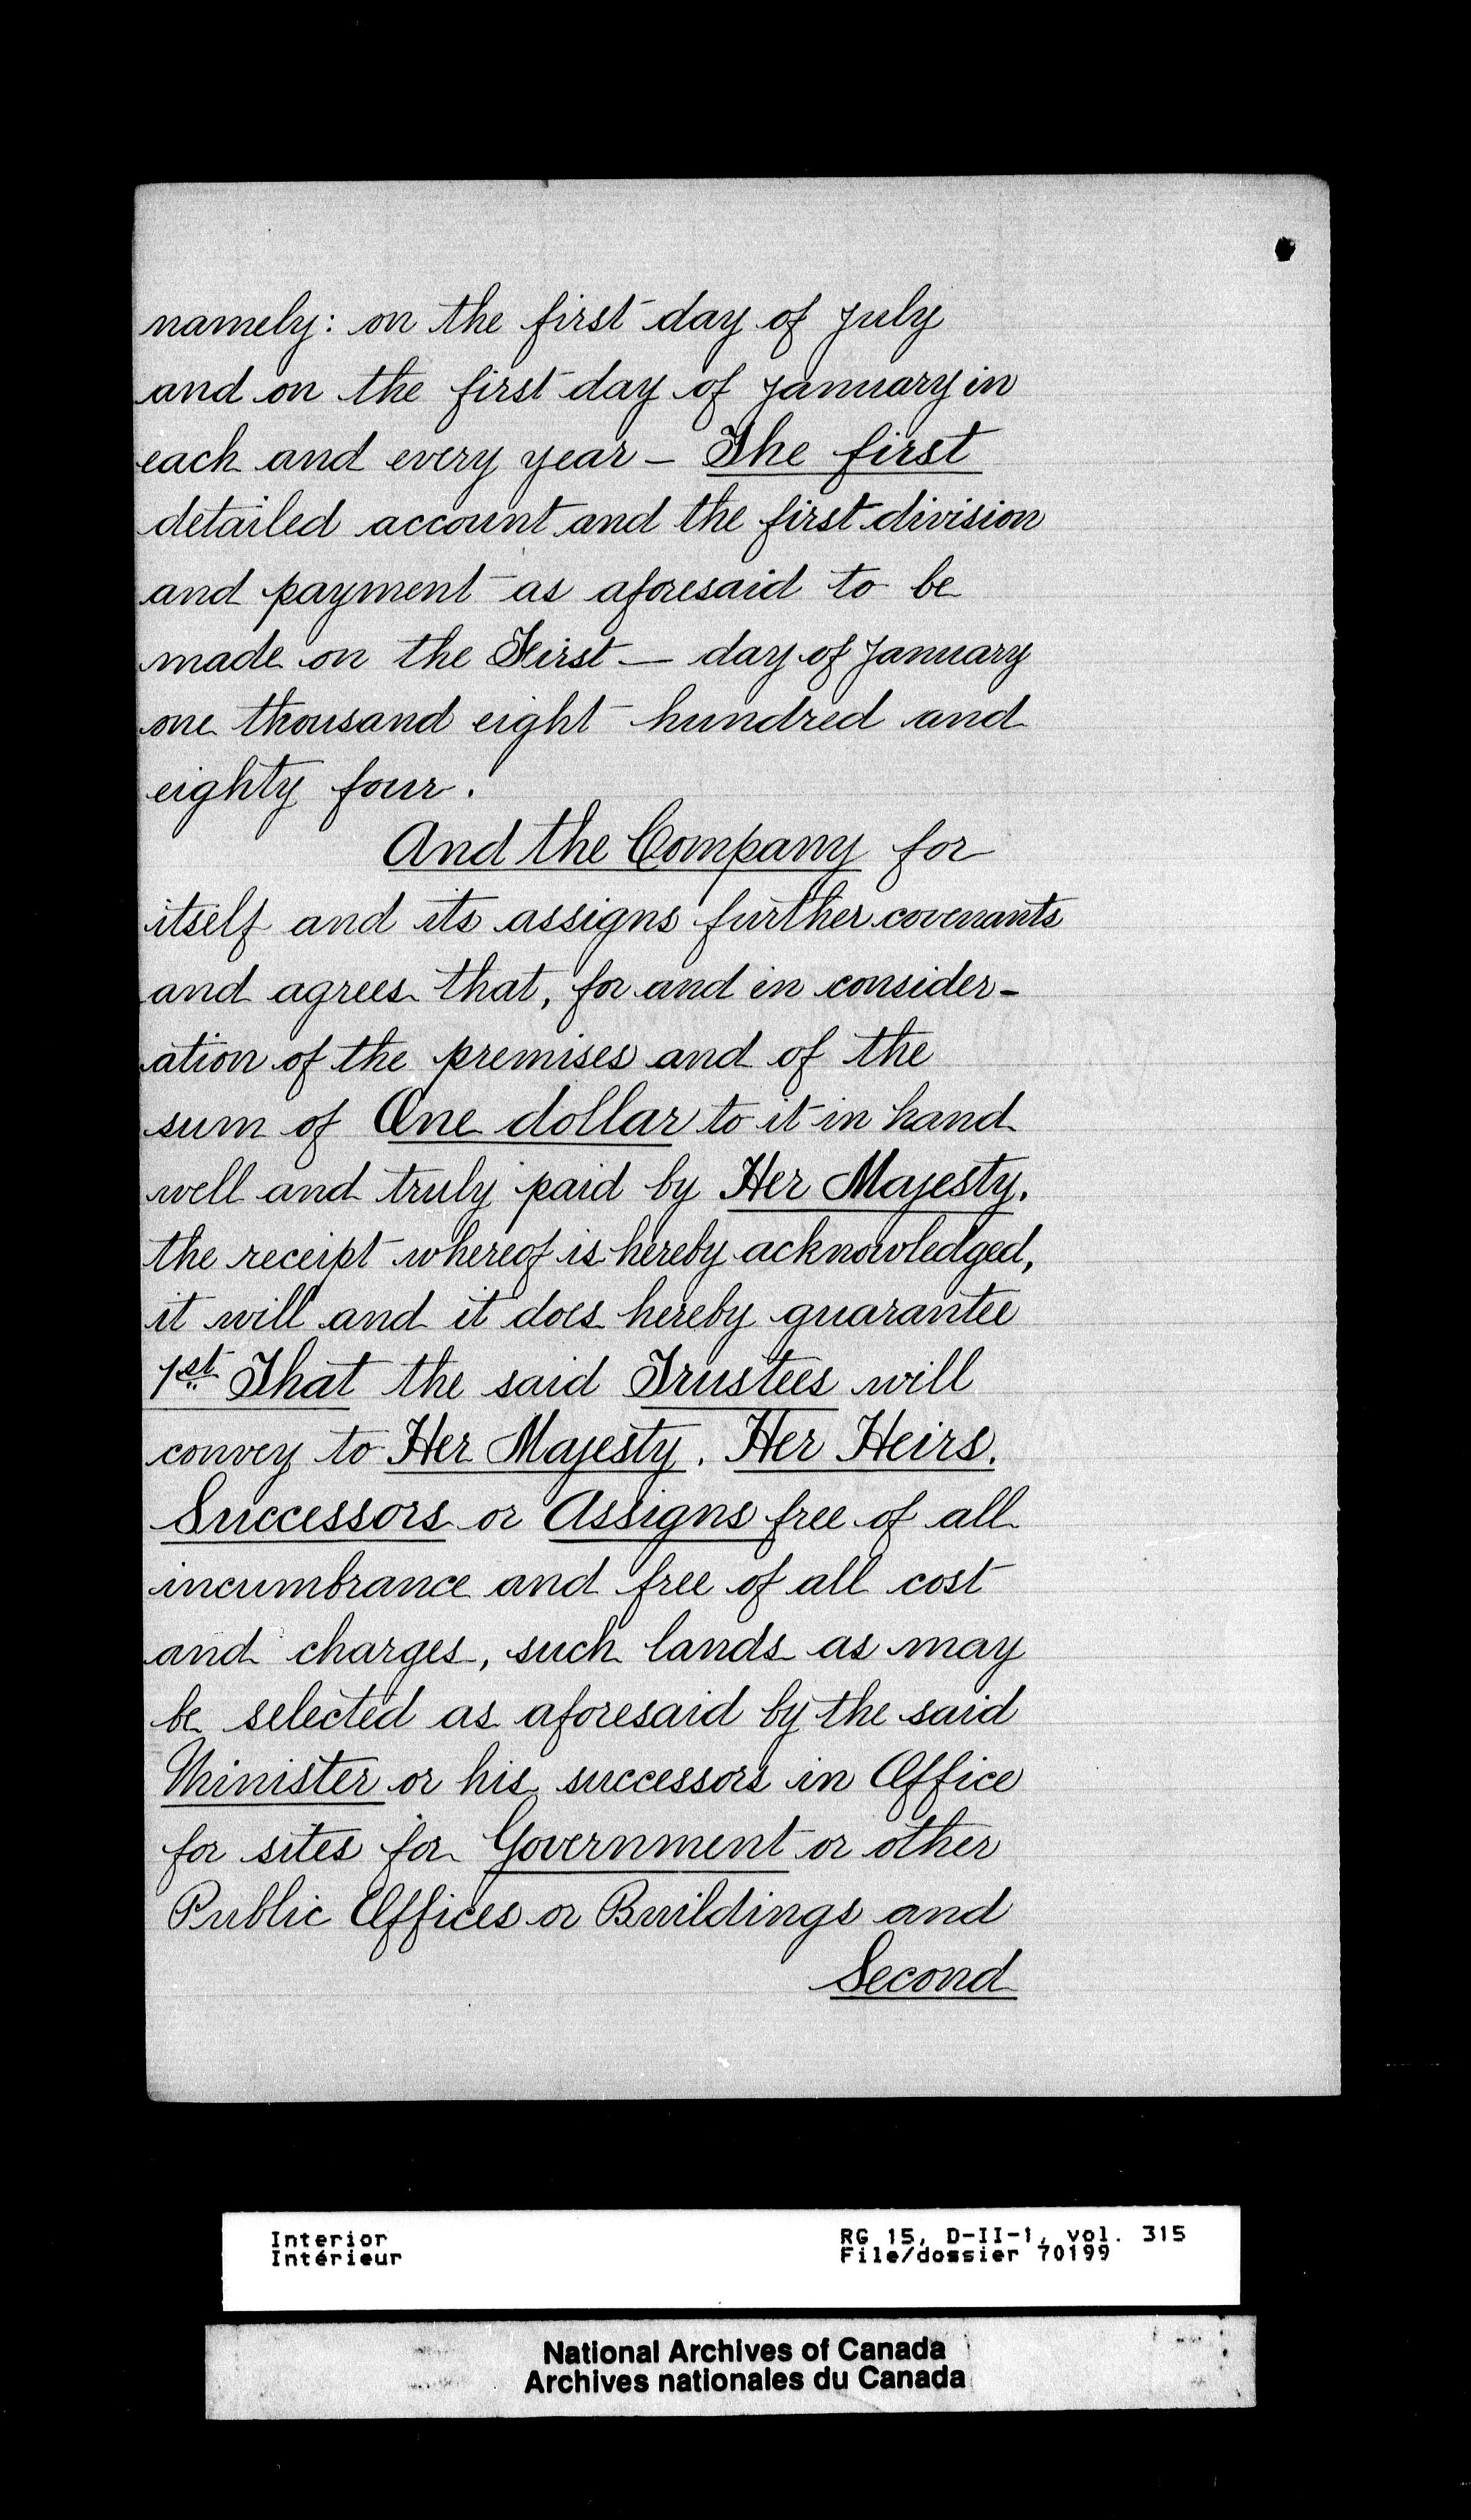 namely: on the first day of July
and on the first day of January in
each and every year – The first
detailed account and the first division
and payment as aforesaid to be
made on the First — day of January
one thousand eight hundred and
eighty four.
And the Company for
itself and its assigns further covenants
and agrees that, for and in consider-
ation of the premises and of the
sum of One dollar to it in hand
well and truly paid by Her Majesty.
the receipt whereof is hereby acknowledged,
it will and it does hereby guarantee
1st That the said Trustees will
convey to Her Majesty. Her Heirs.
Successors or Assigns free of all
incumbrance and free of all cost
and charges, such lands as may
be selected as aforesaid by the said
Minister or his successors in Office
for sites for Government or other
Public Offices or Buildings and
Second
Interior
Intérieur
RG 15, D-II-1, vol. 315
File/dossier 70199
National Archives of Canada
Archives nationales du Canada